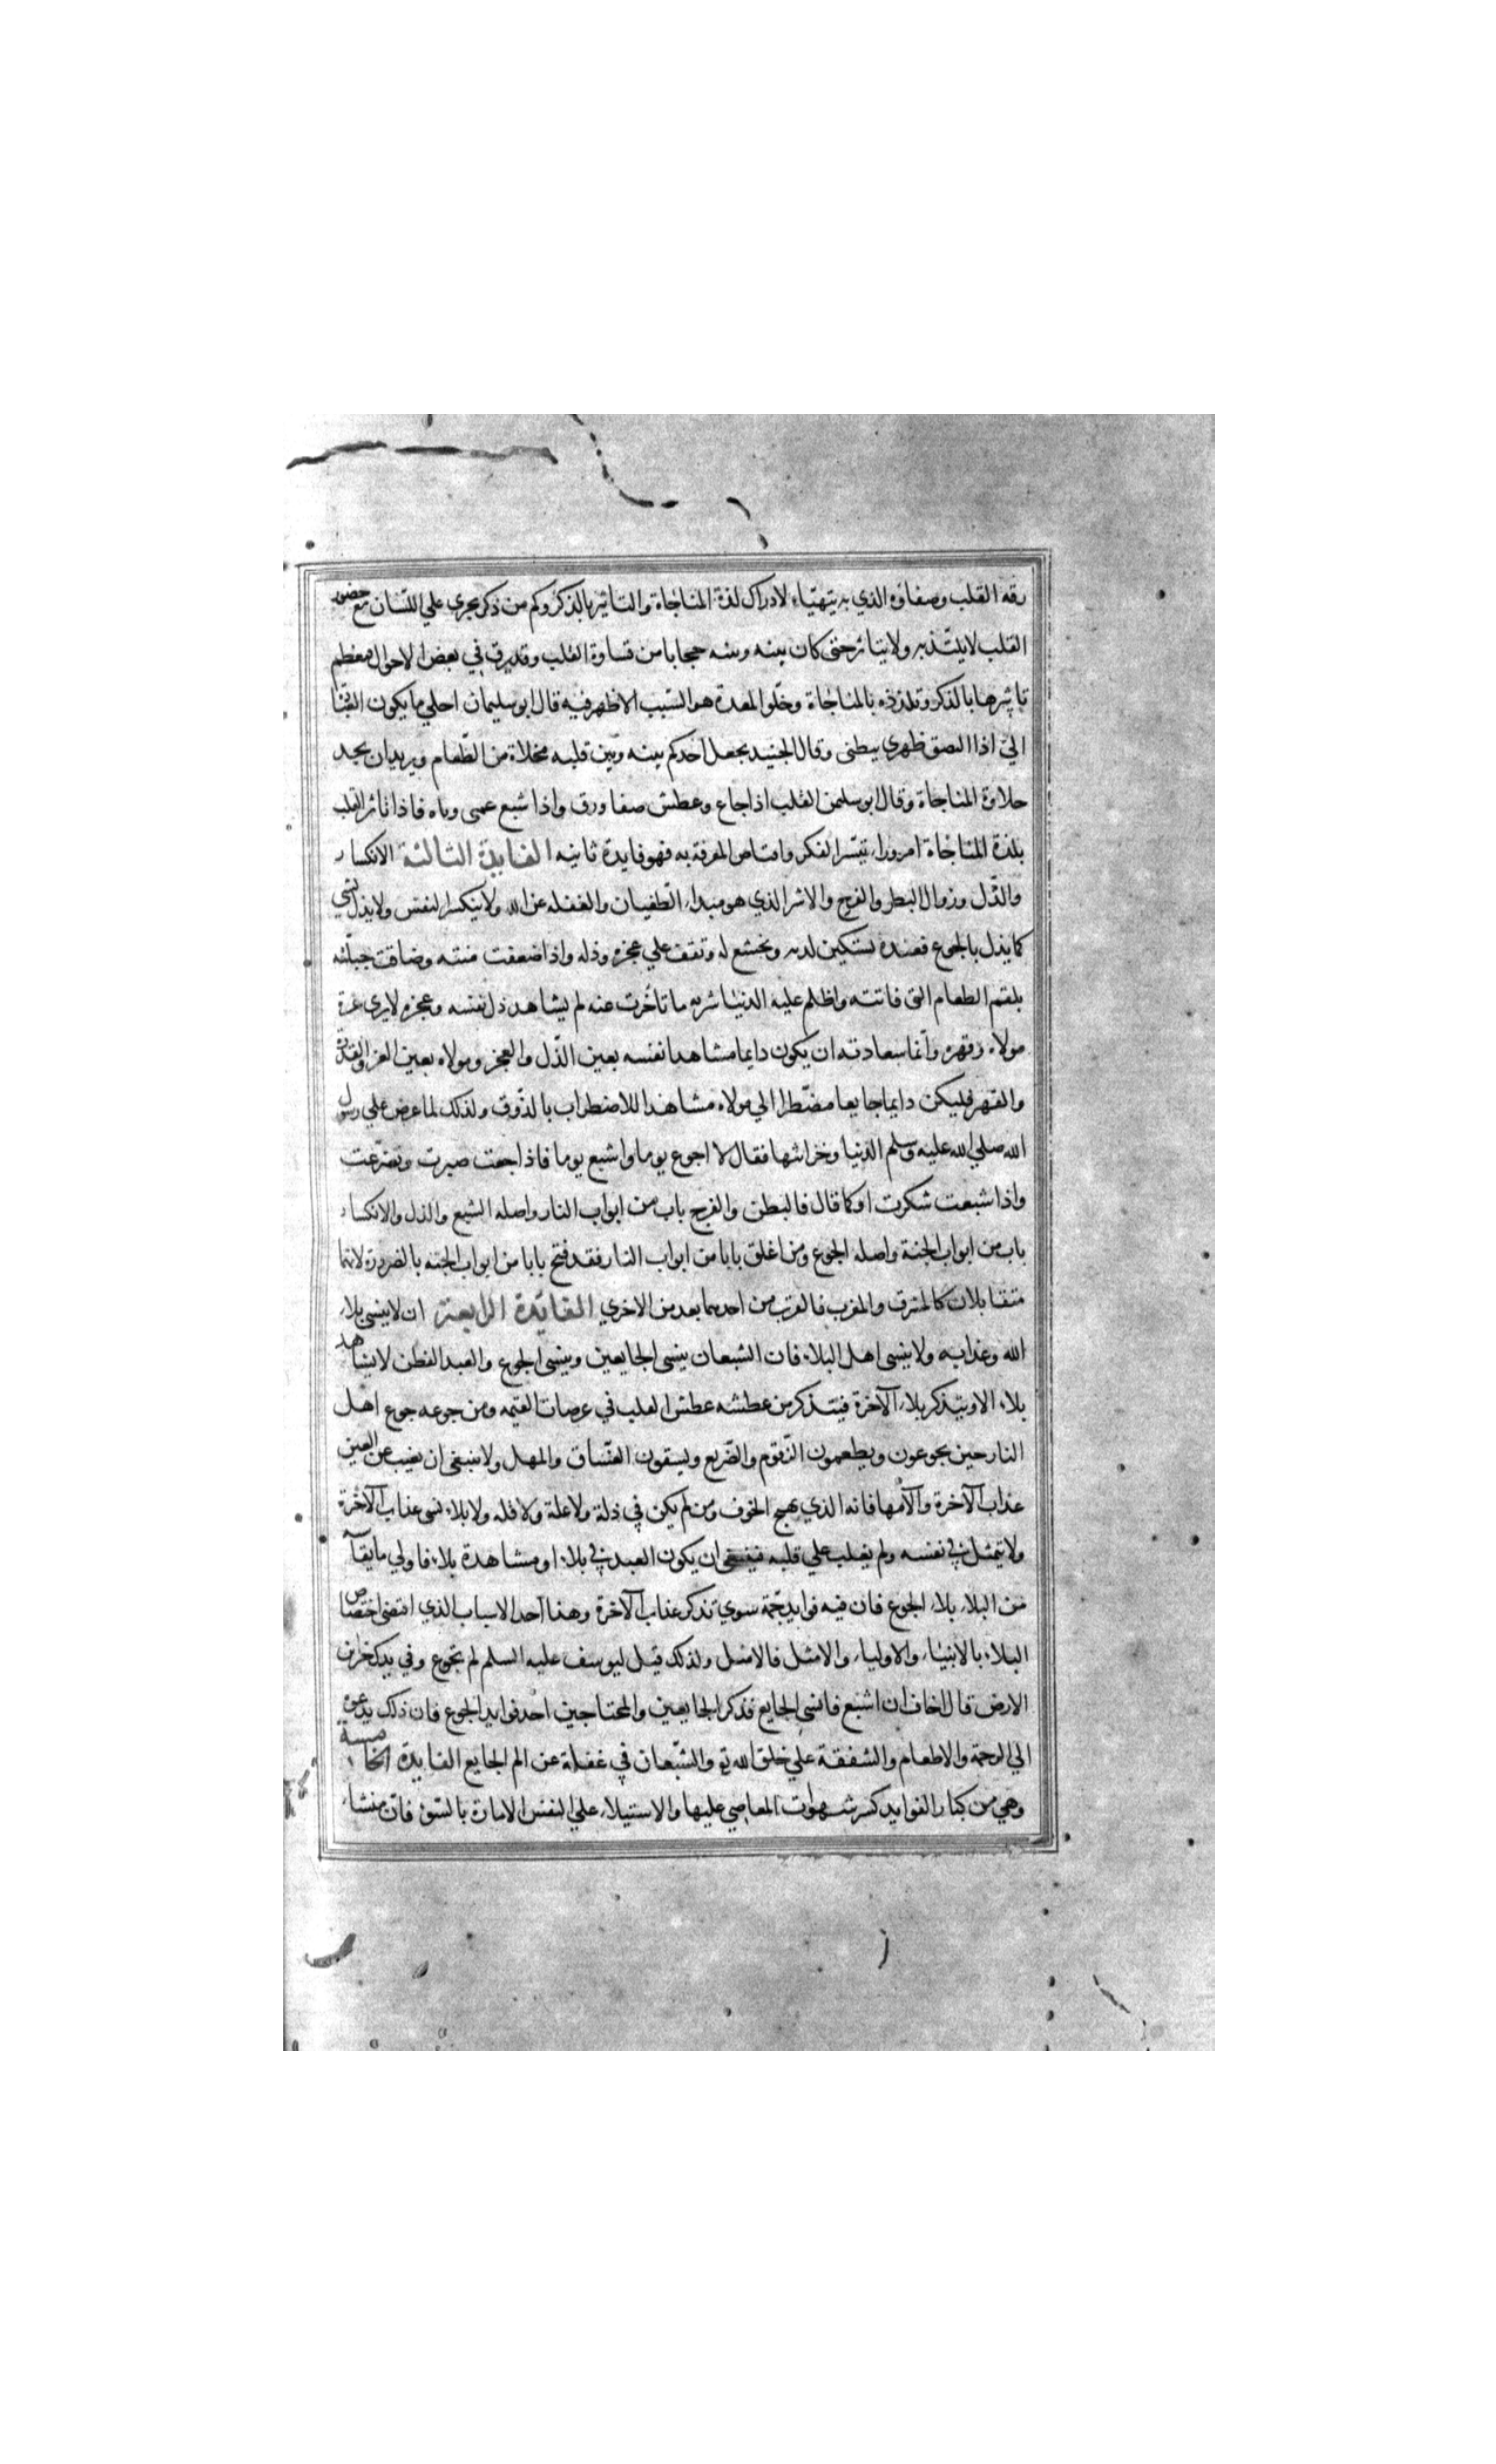 رقة القلب وصفاؤه الذي به يتهيّاء لادراك لذة المناجاة والتاثير بالذكر وكم من ذكر يجري علي اللسان مع حضور
القلب لا يلتذ به ولا يتاثر حتى كان بينه وبينه حجابا من قساوة القلب وقد يرق في بعض الاحوال معظم
تاثيرها بالذكر وتلذذه بالمناجاة وخلو المعدة هو السبب الاظهر فيه قال ابو سليمان احلي ما يكون
اليّ اذا التصق ظهري ببطنى وقال الجنيد يجعل احدكم بينه وبين قلبه مخلاة من الطعام ويريد ان يجد
حلاوة المناجاة وقال ابو سليمن القلب اذا جاع وعطش صفا ورق واذا شبع عمى وباه فاذا تاثر القلب
بلذة المناجاة امر وراء تيسر الفكر واقتناص المعرفة به فهو فايدة ثانيه الفايدة الثالثة الانكسار
والذل وزوال البطر والفرح والاشر الذي هو مبداء الطغيان والغفله عن الله ولا ينكسر النفس ولا يذل لشي
كما يذل بالجوع فعنده تستكين لديه ويخشع له وتقف علي عجزه وذله واذا ضعفت منته وضاقت حيلته
بلقم الطعام التى فاتته واظلم عليه الدنيا شربه ما تاخرت عنه لم يشاهد ذل نفسه وعجزه لا يرى عزة
مولاه وقهره وانما سعادته ان يكون دايما مشاهدا نفسه بعين الذل والعجز ومولاه بعين العز والقدرة
والقهر فليكن دايما جايعا مضطرا الي مولاه مشاهدا للاضطراب بالذوق ولذلك لما عرض علي رسول
الله صلي الله عليه وسلم الدنيا وخزائنها فقال لا اجوع يوما واشبع يوما فاذا جعت صبرت وتضرعت
واذا شبعت شكرت او كما قال فالبطن والفرج باب من ابواب النار واصله الشبع والذل والانكسار
باب من ابواب الجنة واصله الجوع ومن اغلق بابا من ابواب النار فقد فتح بابا من ابواب الجنه بالضرورة لانهما
متقابلان كالمشرق والمغرب فالقرب من احدهما بعد من الاخري الفائدة الرابعة ان لا ينسى بلاء
الله وعذابه ولا ينسى اهل البلاء فان الشبعان ينسى الجايعين وينسى الجوع والعبد الفطن لا يشاهد
بلاء الا ويتذكر بلاء الآخرة فيتذكر من عطشه عطش في عرصات القيمه ومن جوعه جوع اهل
النار حين يجوعون ويطعمون الزقوم والضريع ويسقون الغساق والمهل ولا ينبغى ان يغيب عن العين
عذاب الآخرة والآمها فانه الذي يهيج الخوف ومن لم يكن في ذلة ولا علة ولا قله ولا بلاء نسى عذاب الآخرة
ولا يتمثل في نفسه ولم يغلب علي قلبه فينبغى ان يكون العبد في بلاء او مشاهدة بلاء فاولي ما
من البلاء بلاء الجوع فان فيه فوايد جمة سوي تذكر عذاب الآخرة وهذا احد الاسباب الذي اقتضى اختصاص
البلاء بالانبياء والاولياء والامثل فالامثل ولذلك قيل ليوسف عليه السلم لم تجوع وفي يدك خزائن
الارض قال اخاف ان اشبع فانسى الجايع فذكر الجايعين والمحتاجين احد فوايد الجوع فان ذلك يدعو
الي الرحمة والاطعام والشفقة علي خلق الله تع والشبعان في غفلة عن الم الجايع الفايدة الخامسة
وهي من كبار الفوايد كسر شهوات المعاصي عليها والاستيلاء علي النفس الامارة بالسوء فان منشاء